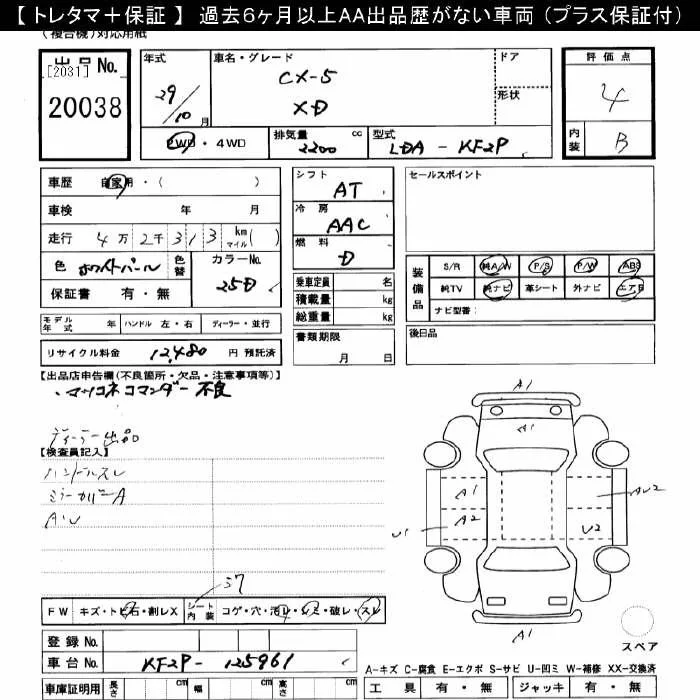 【 トレタマ＋保証 】 過去6ヶ月以上AA出品歴がない車両 (プラス保証付)
(複合機)対応用紙
出品No.
[2031]
20038
年式
29/10 月
車名・グレード
CX-5
XD
ドア
形状
評価点
4
内装 B
2WD・4WD
排気量 cc
2200
型式
LDA - KF2P
車歴 自家用・( )
車検 年 月
走行 4万2千313 km マイル( )
色 ホワイトパール 色替 カラーNo. 25D
保証書 有・無
シフト
AT
冷房
AAC
燃料
D
乗車定員 名
積載量 kg
総重量 kg
セールスポイント
装備品
S/R 純A/W P/S P/W ABS
純TV 純ナビ 革シート 外ナビ エアB
ナビ型番:
モデル年式 年 ハンドル 左・右 ディーラー・並行
リサイクル料金 12,480 円 預託済
書類期限
月 日
後日品
【出品店申告欄(不良箇所・欠品・注意事項等)】
・マツコネコマンダー不良
ディーラー出品
【検査員記入】
ハンドルスレ
ミラーカバーA
AU
A1
A1
A1
A2
U1
AU2
U2
A1
スペア
FW キズ・トビ石・割レX シート内装 コゲ・穴・汚レ・シミ・破レ・スレ
登録No.
車台No. KF2P-125961
車庫証明用 長さ cm 幅 cm 高さ cm
A-キズ C-腐食 E-エクボ S-サビ U-凹ミ W-補修 XX-交換済
工具 有・無 ジャッキ 有・無